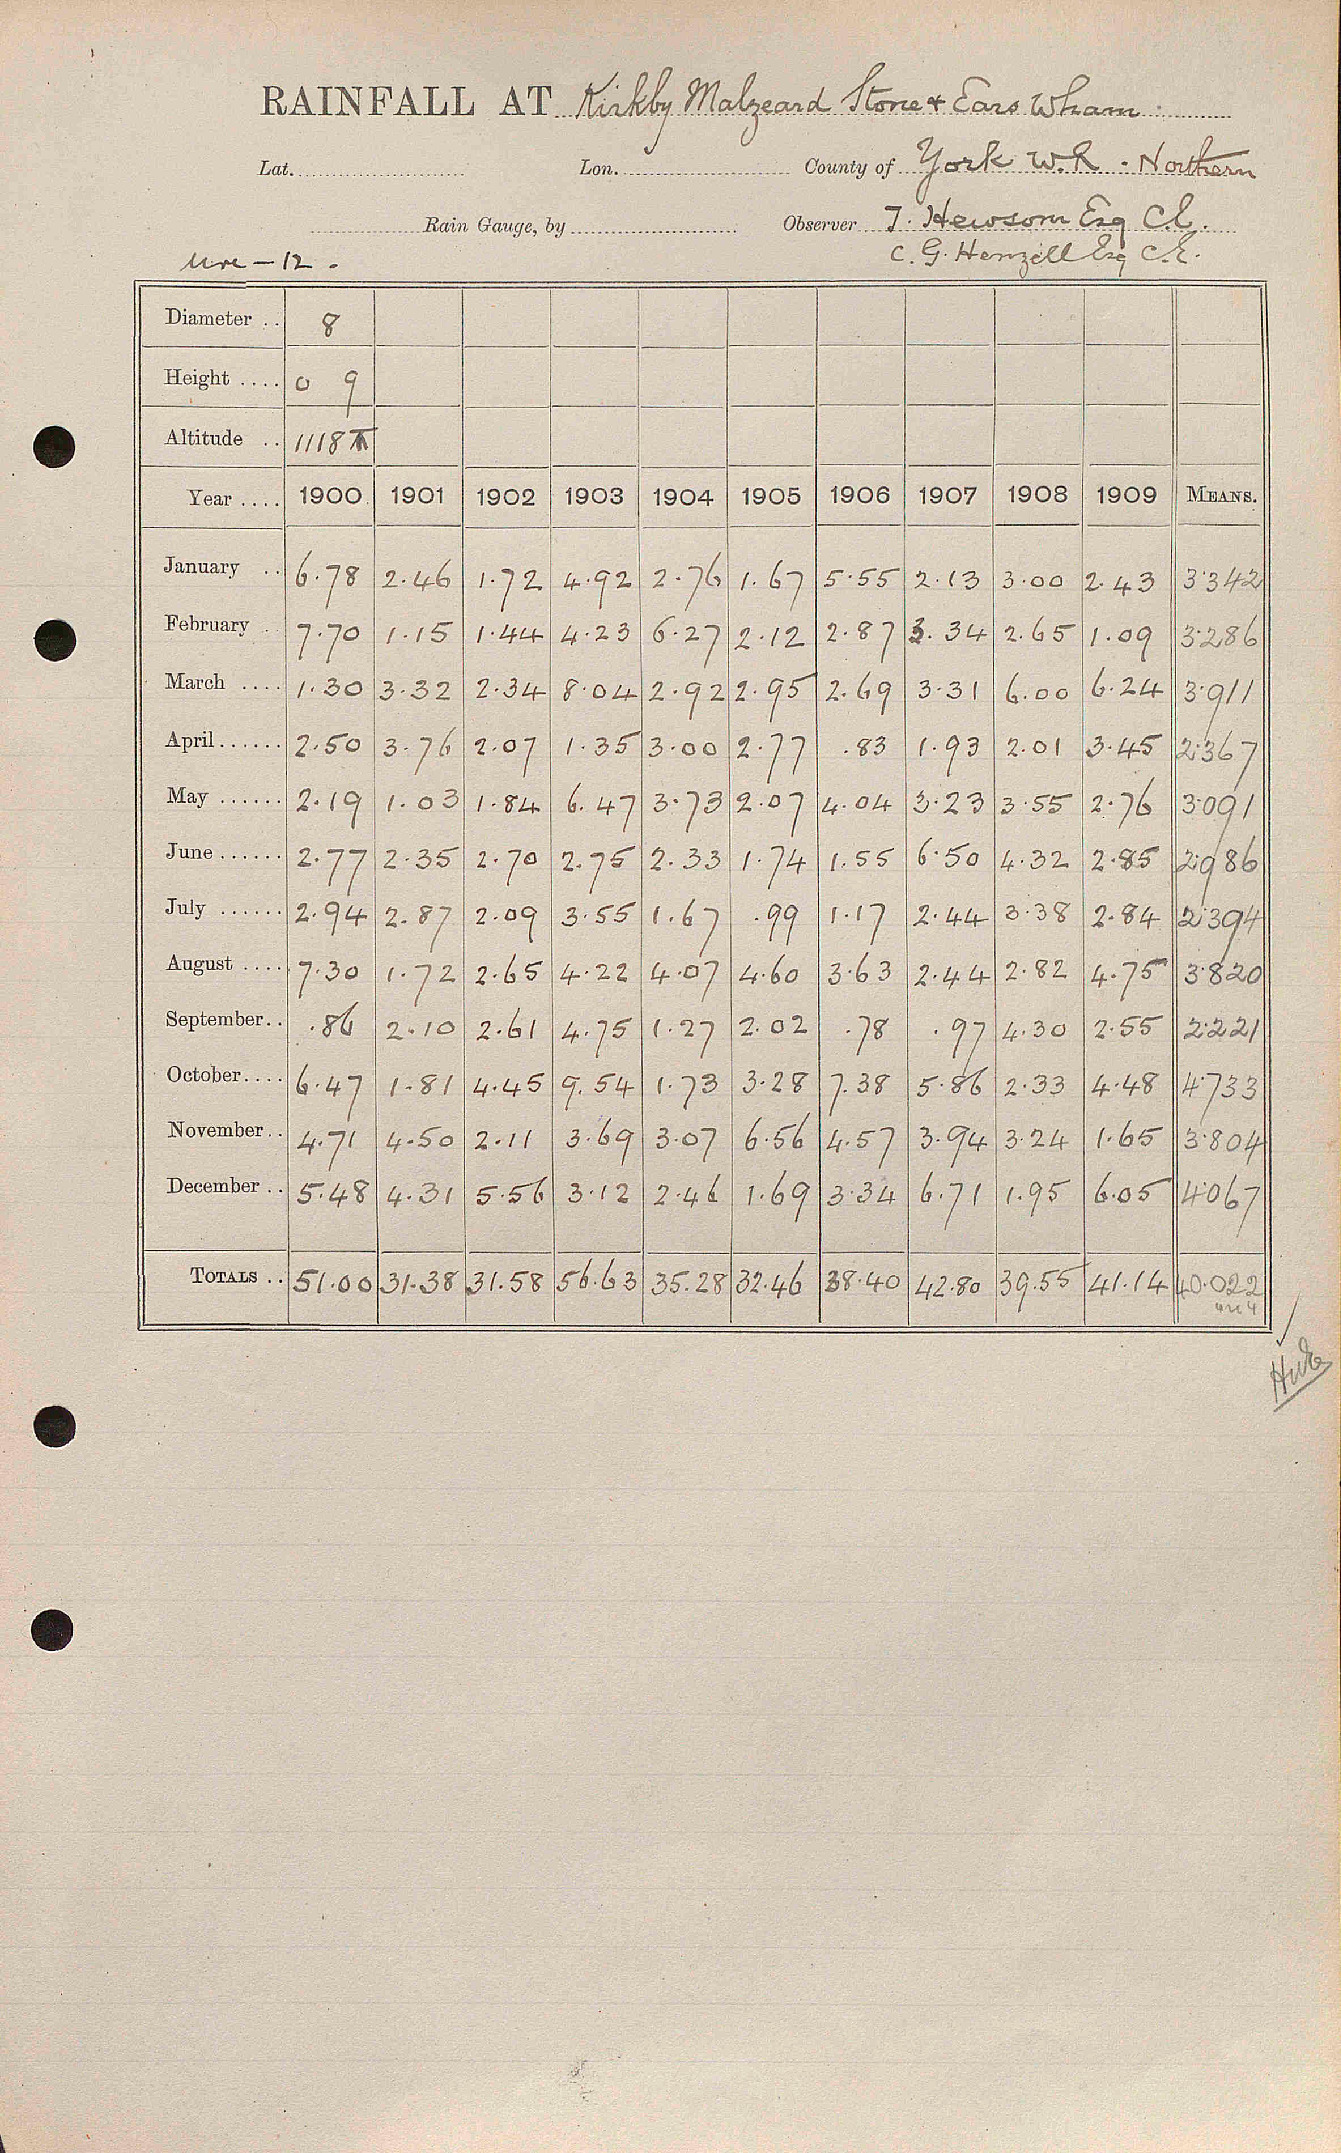 RAINFALL AT Kirkby Malzeard Stone & Ears Wham
Lat. Lon. County of York W.R. - Northern
Rain Gauge, by Observer T. Hewsom Esq C.E.
Ure - 12. C. G. Henzell Esq C.E.
Diameter .. 8
Height .... 0 9
Altitude .. 1118
Year .... 1900 1901 1902 1903 1904 1905 1906 1907 1908 1909 MEANS.
January .. 6.78 2.46 1.72 4.92 2.76 1.67 5.55 2.13 3.00 2.43 3.342
February .. 7.70 1.15 1.44 4.23 6.27 2.12 2.87 3.34 2.65 1.09 3.286
March .... 1.30 3.32 2.34 8.04 2.92 2.95 2.69 3.31 6.00 6.24 3.911
April...... 2.50 3.76 2.07 1.35 3.00 2.77 .83 1.93 2.01 3.45 2.367
May ...... 2.19 1.03 1.84 6.47 3.73 2.07 4.04 3.23 3.55 2.76 3.091
June ...... 2.77 2.35 2.70 2.75 2.33 1.74 1.55 6.50 4.32 2.85 2.986
July ...... 2.94 2.87 2.09 3.55 1.67 .99 1.17 2.44 3.38 2.84 2.394
August .... 7.30 1.72 2.65 4.22 4.07 4.60 3.63 2.44 2.82 4.75 3.820
September.. .86 2.10 2.61 4.75 1.27 2.02 .78 .97 4.30 2.55 2.221
October.... 6.47 1.81 4.45 9.54 1.73 3.28 7.38 5.86 2.33 4.48 4.733
November.. 4.71 4.50 2.11 3.69 3.07 6.56 4.57 3.94 3.24 1.65 3.804
December .. 5.48 4.31 5.56 3.12 2.46 1.69 3.34 6.71 1.95 6.05 4.067
TOTALS .. 51.00 31.38 31.58 56.63 35.28 32.46 38.40 42.80 39.55 41.14 40.022